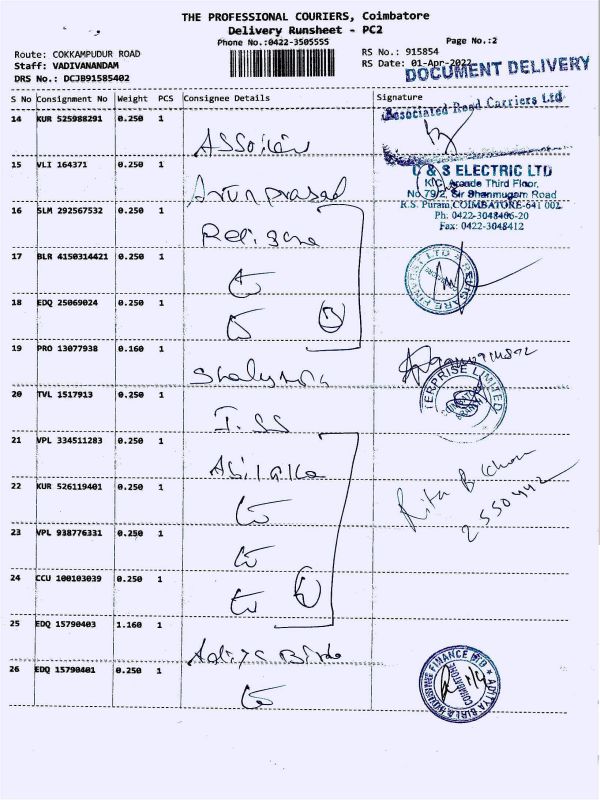 THE PROFESSIONAL COURIERS, Coimbatore
Delivery Runsheet - PC2
Phone No.:0422-3505555
Page No.:2
Route: COKKAMPUDUR ROAD
Staff: VADIVANANDAM
DRS No.: DCJB91585402
RS No.: 915854
RS Date: 01-Apr-2022
DOCUMENT DELIVERY
S No Consignment No Weight PCS Consignee Details Signature
Associated Road Carriers Ltd
14 KUR 525988291 0.250 1
15 VLI 164371 0.250 1 Arun prasad
C & S ELECTRIC LTD
KIC Arcade Third Floor,
No.79/2, Sir Shanmugam Road
R.S. Puram, COIMBATORE-641 002
Ph: 0422-3048406-20
Fax: 0422-3048412
16 SLM 292567532 0.250 1 Religare
17 BLR 4150314421 0.250 1
18 EDQ 25069024 0.250 1 3
19 PRO 13077938 0.160 1
20 TVL 1517913 0.250 1
TERPRISE LIMITED
21 VPL 334511283 0.250 1
22 KUR 526119401 0.250 1
Rita
2550442
23 VPL 938776331 0.250 1
24 CCU 100103039 0.250 1
25 EDQ 15790403 1.160 1 Aditya Birla
26 EDQ 15790401 0.250 1
ADITYA BIRLA HOUSING FINANCE LTD
COIMBATORE